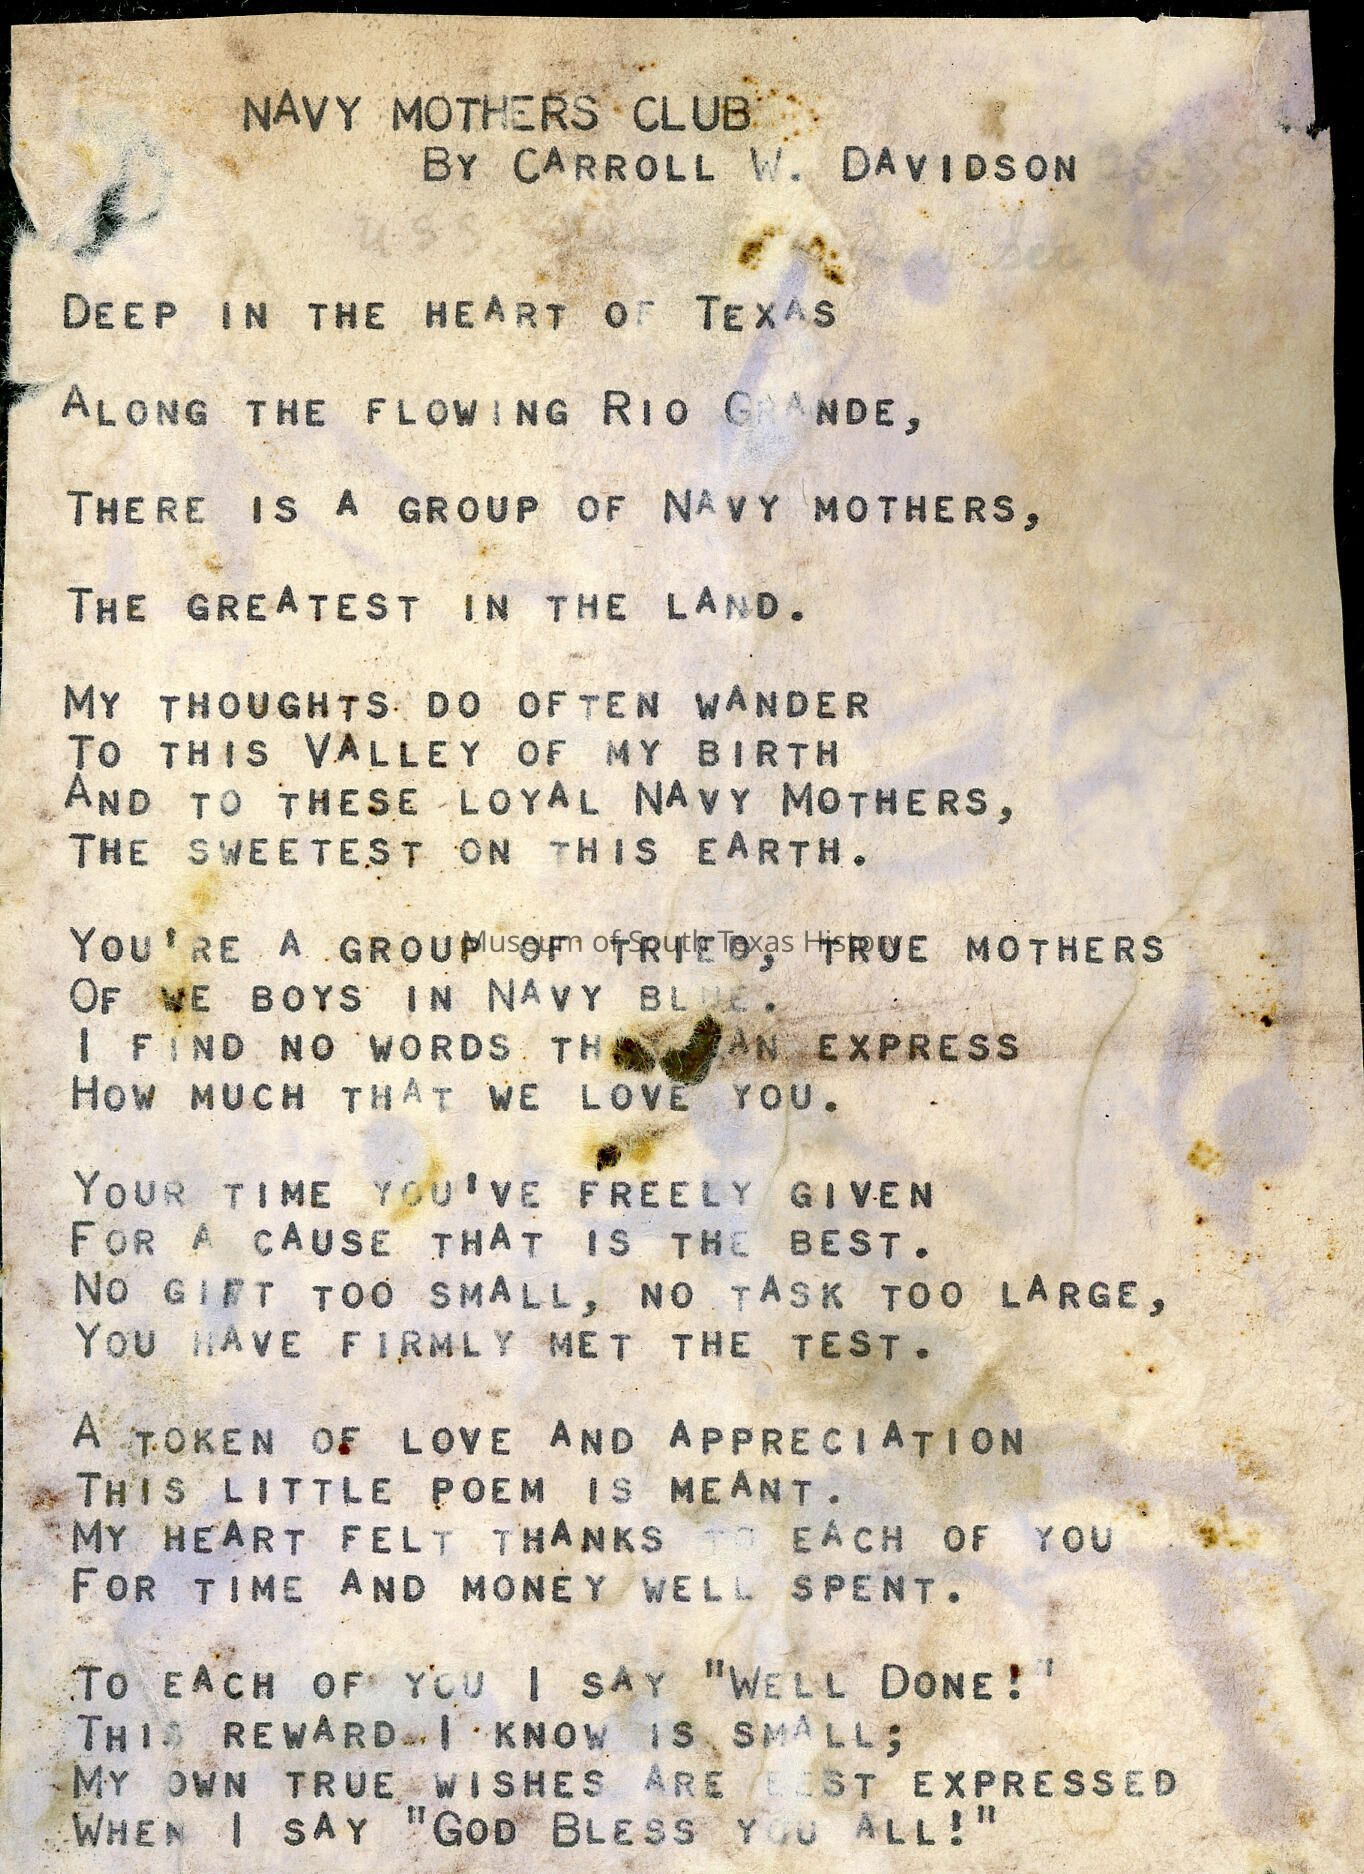 NAVY MOTHERS CLUB
BY CARROLL W. DAVIDSON
USS
DEEP IN THE HEART OF TEXAS
ALONG THE FLOWING RIO GRANDE,
THERE IS A GROUP OF NAVY MOTHERS,
THE GREATEST IN THE LAND.
MY THOUGHTS DO OFTEN WANDER
TO THIS VALLEY OF MY BIRTH
AND TO THESE LOYAL NAVY MOTHERS,
THE SWEETEST ON THIS EARTH.
YOU'RE A GROUP OF TRIED, TRUE MOTHERS
Museum of South Texas History
OF WE BOYS IN NAVY BLUE.
I FIND NO WORDS THAT CAN EXPRESS
HOW MUCH THAT WE LOVE YOU.
YOUR TIME YOU'VE FREELY GIVEN
FOR A CAUSE THAT IS THE BEST.
NO GIFT TOO SMALL, NO TASK TOO LARGE,
YOU HAVE FIRMLY MET THE TEST.
A TOKEN OF LOVE AND APPRECIATION
THIS LITTLE POEM IS MEANT.
MY HEART FELT THANKS TO EACH OF YOU
FOR TIME AND MONEY WELL SPENT.
TO EACH OF YOU I SAY "WELL DONE!"
THIS REWARD I KNOW IS SMALL;
MY OWN TRUE WISHES ARE BEST EXPRESSED
WHEN I SAY "GOD BLESS YOU ALL!"